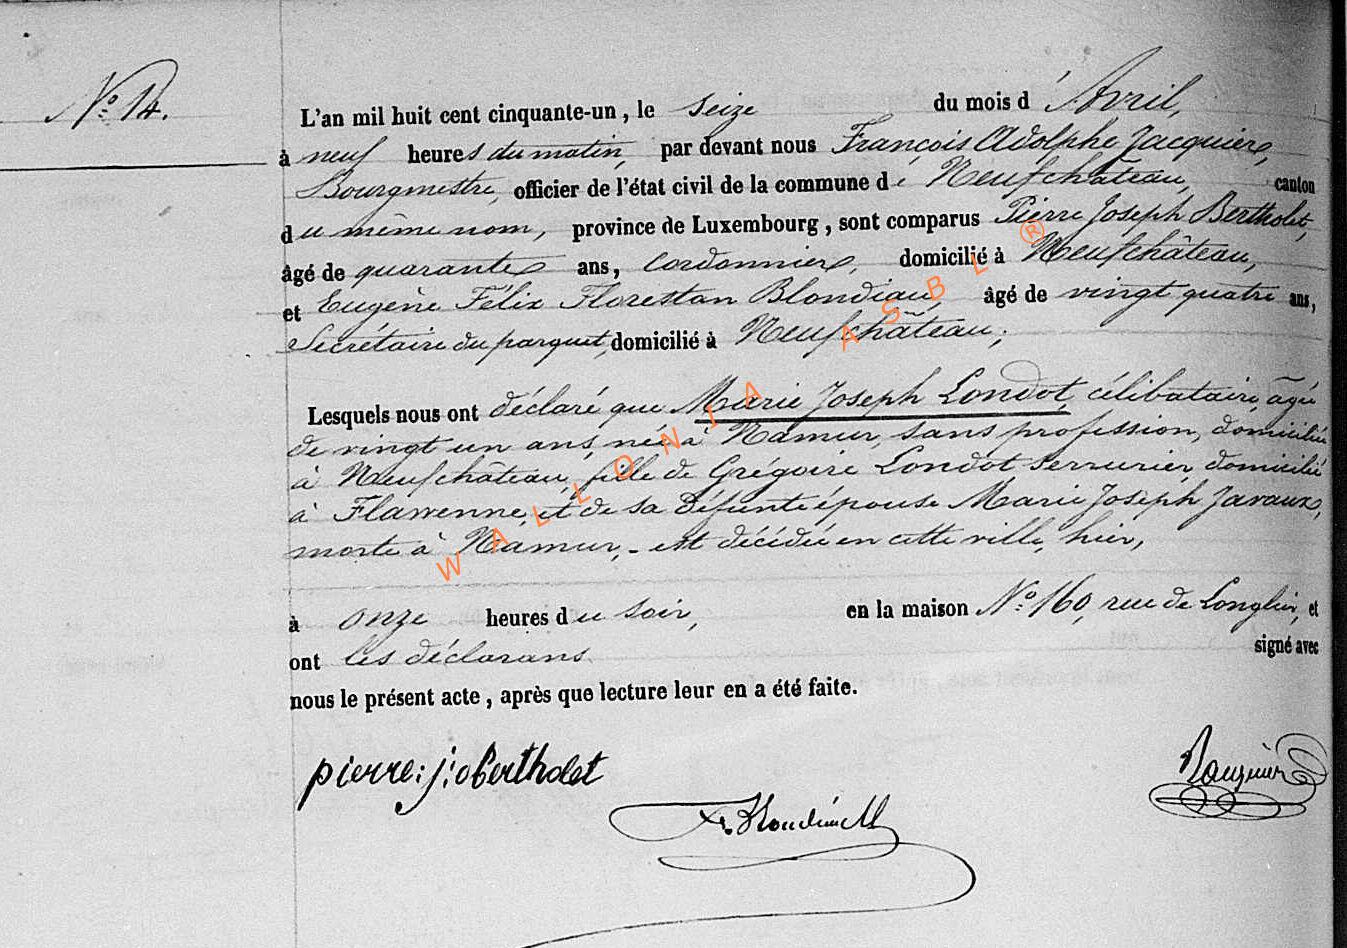 N.º 14.
L'an mil huit cent cinquante-un, le seize du mois d'Avril,
à neuf heures du matin, par devant nous François Adolphe Jacquier,
Bourgmestre, officier de l'état civil de la commune de Neufchâteau, canton
du même nom, province de Luxembourg, sont comparus Pierre Joseph Bertholet,
âgé de quarante ans, cordonnier, domicilié à Neufchâteau,
et Eugène Félix Florestan Blondiau, âgé de vingt quatre ans,
Secrétaire du parquet, domicilié à Neufchâteau;
Lesquels nous ont déclaré que Marie Joseph Londot, célibataire, âgée
de vingt un ans, née à Namur, sans profession, domiciliée
à Neufchâteau, fille de Grégoire Londot serrurier, domicilié
à Flawenne, et de sa défunte épouse Marie Joseph Javaux,
morte à Namur, - est décédée en cette ville, hier,
à onze heures du soir, en la maison N.º 160, rue de Longlier, et
ont les déclarans signé avec
nous le présent acte, après que lecture leur en a été faite.
pierre: j: Bertholet
Jacquier
F. Blondiau
WALLONIA ASBL ®